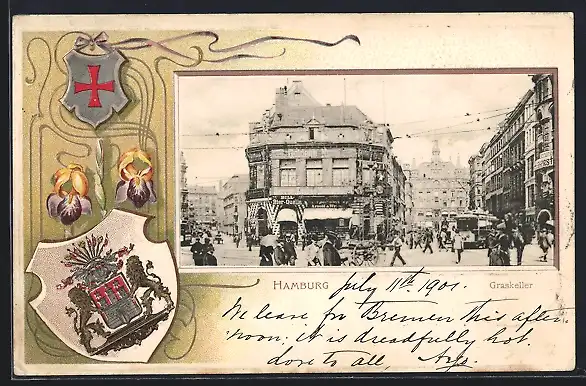 Bier-Quelle
HAMBURG
Graskeller
July 11th 1901.
We leave for Bremen this after-
noon: it is dreadfully hot.
Love to all,